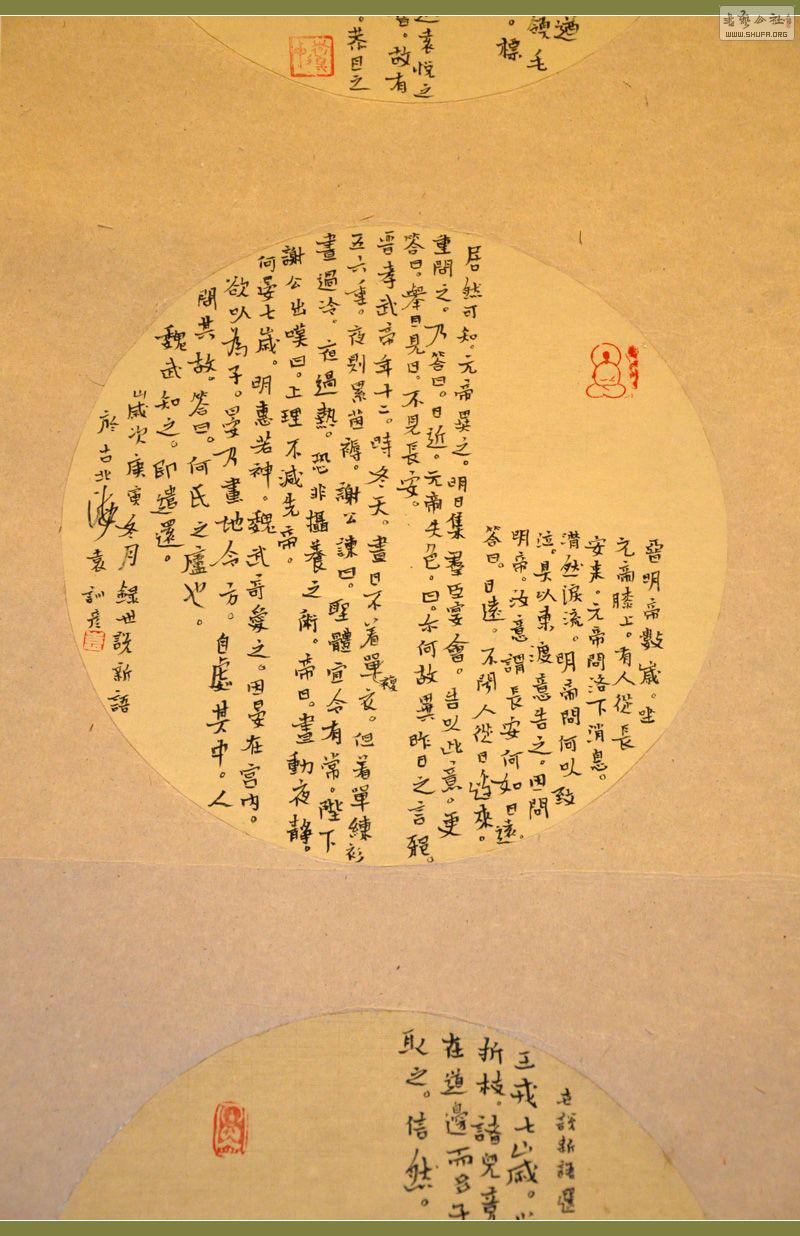 書藝公社
WWW.SHUFA.ORG
領毛
。標
之袁悦之
。故有
。恭曰之
晉明帝數歲。坐
元帝膝上。有人從長
安来。元帝問洛下消息。
潸然淚流。明帝問何以致
泣。具以東渡意告之。因問
明帝。汝意謂長安何如日遠。
答曰。日遠。不聞人從日邊來。
居然可知。元帝異之。明日集羣臣宴會。告以此意。更
重問之。乃答曰。日近。元帝失色。曰。尔何故異昨日之言邪。
答曰。舉目見日。不見長安。
晋孝武帝年十二。時冬天。晝日不着單複衣。但着單練衫
五六重。夜則累茵褥。謝公諫曰。聖體宜令有常。陛下
晝過冷。夜過熱。恐非攝養之術。帝曰。晝動夜静。
謝公出嘆曰。上理不減先帝。
何晏七歲。明惠若神。魏武奇愛之。因晏在宫内。
欲以為子。晏乃畫地令方。自處其中。人
問其故。答曰。何氏之廬也。
魏武知之。即遣還。
歲次庚寅冬月録世説新語
於古北海袁訓彦
世説新語選
王戎七歲。
折枝。諸兒競
在道邊而多子
取之。信然。